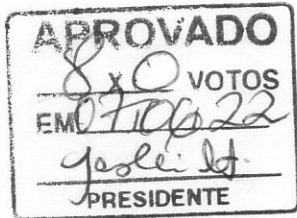 APROVADO
8 x 0 VOTOS
EM 07/06/22
PRESIDENTE